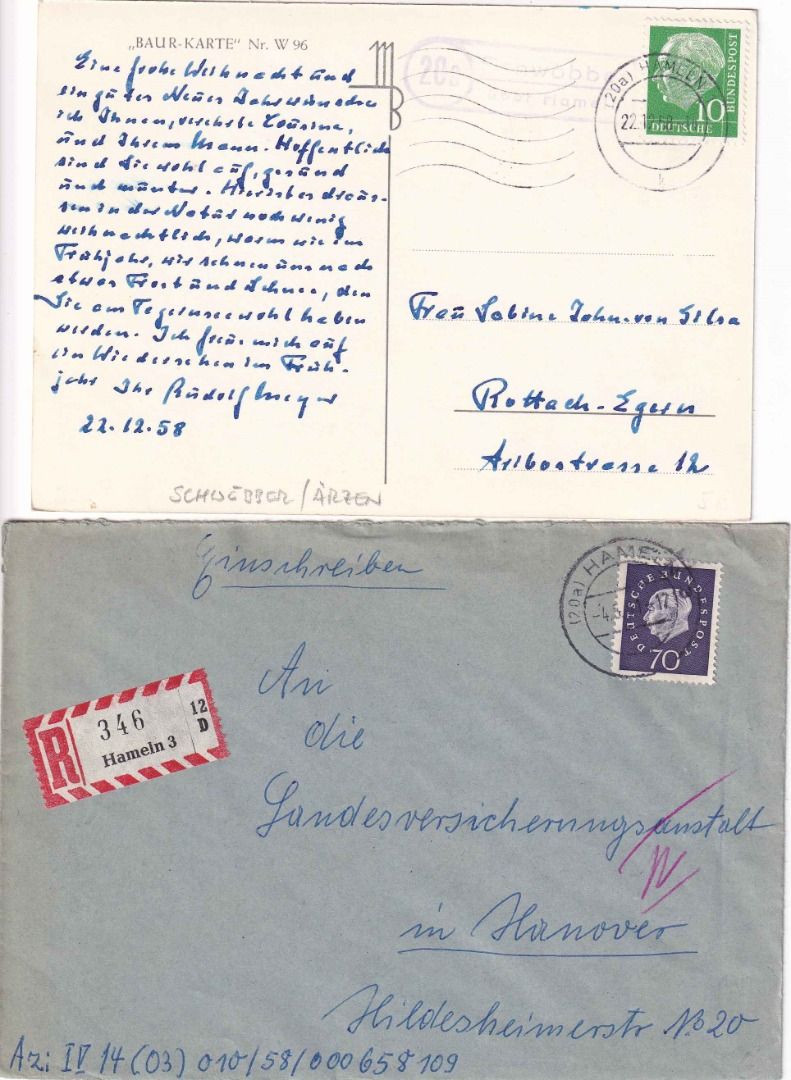 „BAUR-KARTE" Nr. W 96
Eine frohe Weihnacht und
ein gutes Neues Jahr wünsche
ich Ihnen, verehrte Cousine,
und Ihrem Mann. Hoffentlich
sind Sie wohl auf, gesund
und munter. Hier ist es draus-
sen in der Natur noch wenig
weihnachtlich, warm wie im
Frühjahr, wir sehnen uns nach
etwas Frost und Schnee, den
Sie am Tegernsee wohl haben
werden. Ich freue mich auf
ein Wiedersehen im Früh-
jahr Ihr Rudolf Meyer
22.12.58
SCHWÖBBER/ÄRZEN
20a
über Hameln
(20a) HAMELN
22.12.58
k
10
DEUTSCHE
BUNDESPOST
Frau Sabine John-von Gilsa
Rottach-Egern
Aribostrasse 12
Einschreiben
(20a) HAMELN
DEUTSCHE BUNDESPOST
70
R
346
Hameln 3
12
D
An
die
Landesversicherungsanstalt
in Hanover
Hildesheimerstr No 20
Azi IV 14 (03) 010/58/000658109